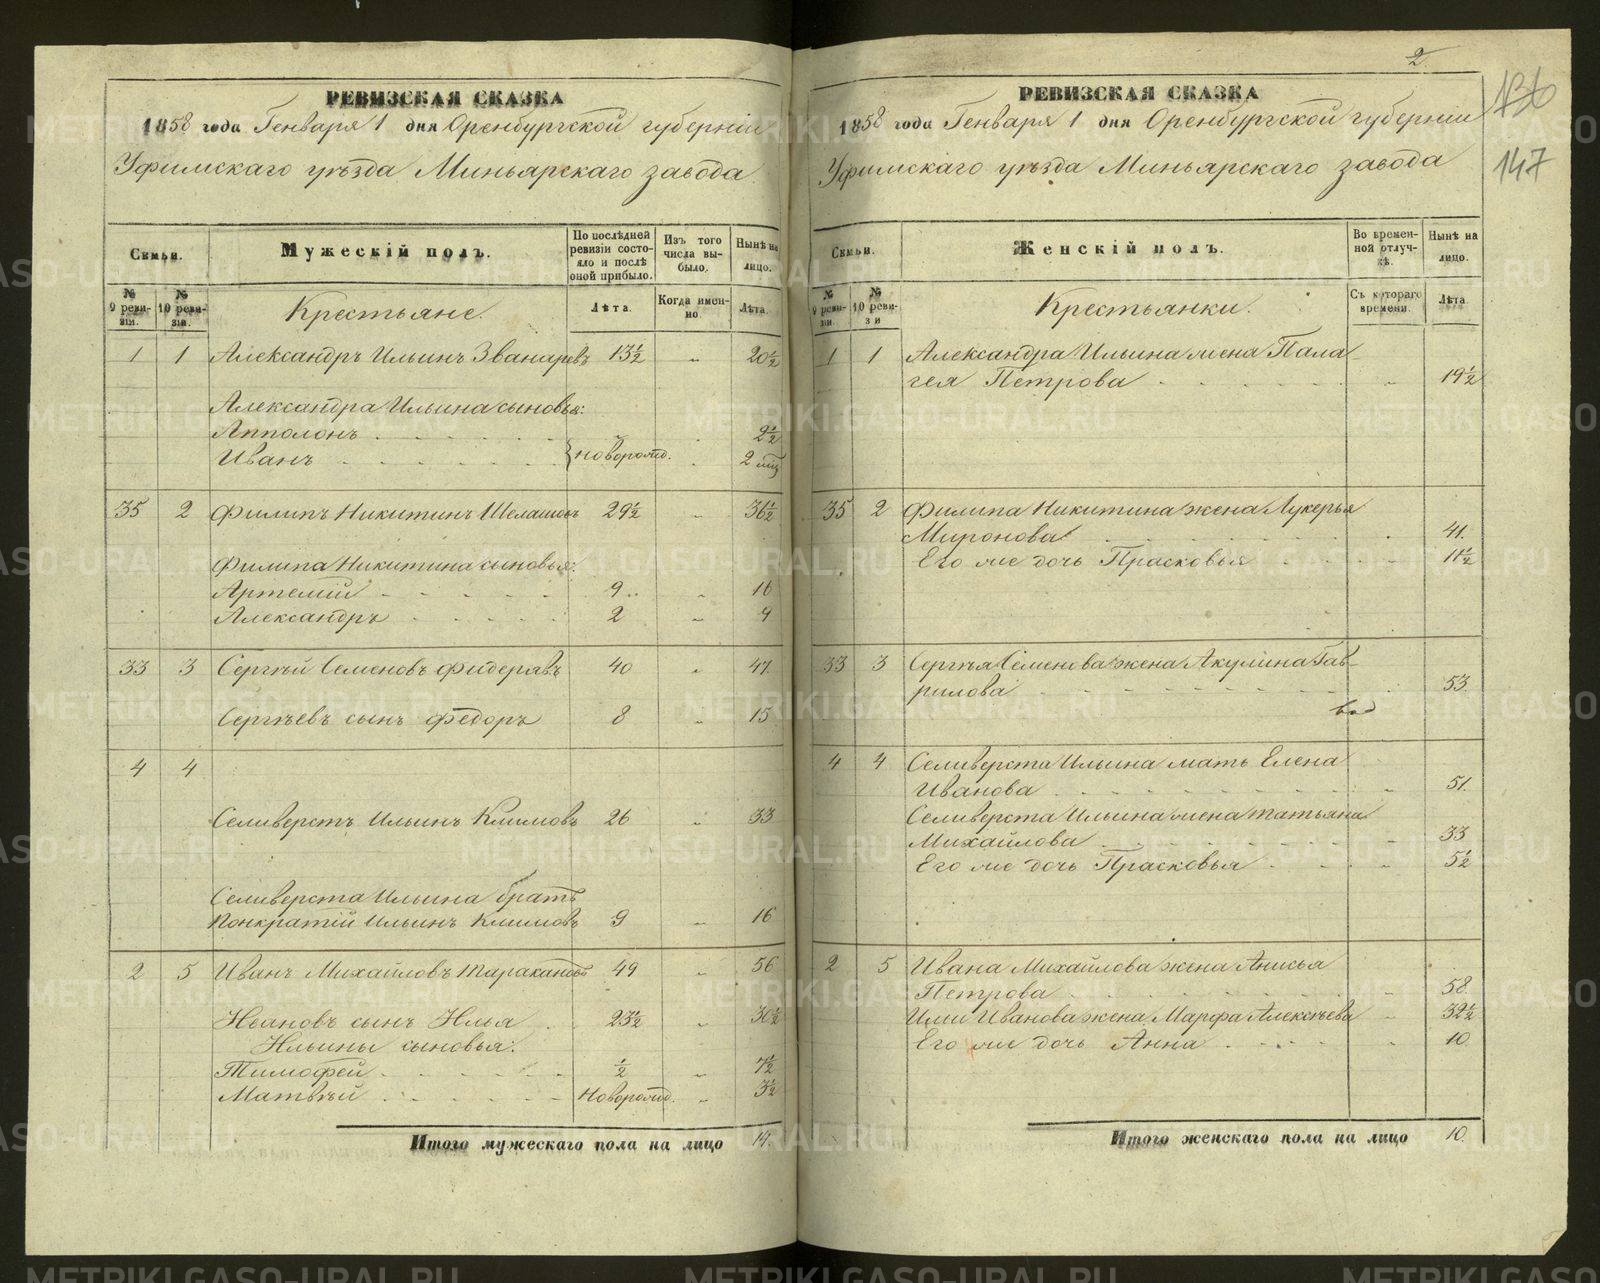 2
136
147
РЕВИЗСКАЯ СКАЗКА
1858 года Генваря 1 дня Оренбургской губерніи
Уфимскаго уѣзда Миньярскаго завода
Семьи.
Мужескій полъ.
По послѣдней ревизіи состояло и послѣ оной прибыло.
Изъ того числа выбыло.
Нынѣ на лицо.
№ 9 ревизіи.
№ 10 ревизіи.
Крестьяне.
Лѣта.
Когда именно
Лѣта.
1 1 Александръ Ильинъ Званаревъ 13½ „ 20½
Александра Ильина сыновья:
Апполонъ 2½
Иванъ новорожд. 2 мц
35 2 Филипъ Никитинъ Шелашовъ 29½ „ 36½
Филипа Никитина сыновья:
Артемій 9 „ 16
Александръ 2 „ 9
33 3 Сергѣй Семеновъ Фидеряевъ 40 „ 47
Сергѣевъ сынъ Федоръ 8 „ 15
4 4
Селиверстъ Ильинъ Климовъ 26 „ 33
Селиверста Ильина братъ
Понкратій Ильинъ Климовъ 9 „ 16
2 5 Иванъ Михайловъ Таракановъ 49 „ 56
Ивановъ сынъ Илья 23½ „ 30½
Ильины сыновья:
Тимофей ½ „ 7½
Матвѣй Новорожд. „ 3½
Итого мужескаго пола на лицо 14.
РЕВИЗСКАЯ СКАЗКА
1858 года Генваря 1 дня Оренбургской губерніи
Уфимскаго уѣзда Миньярскаго завода
Семьи.
Женскій полъ.
Во временной отлучкѣ.
Нынѣ на лицо.
№ 9 ревизіи.
№ 10 ревизіи
Крестьянки.
Съ котораго времени.
Лѣта.
1 1 Александра Ильина жена Пала-
гея Петрова „ 19½
35 2 Филипа Никитина жена Лукерья
Миронова 41.
Его же дочь Прасковья 11½
33 3 Сергѣя Семенова жена Акулина Гав-
рилова 53.
4 4 Селиверста Ильина мать Елена
Иванова 51.
Селиверста Ильина жена Татьяна
Михайлова 33
Его же дочь Прасковья 5½
2 5 Ивана Михайлова жена Анисья
Петрова 58.
Ильи Иванова жена Марфа Алексѣева 32½
Его же дочь Анна 10.
Итого женскаго пола на лицо 10.
METRIKI.GASO-URAL.RU